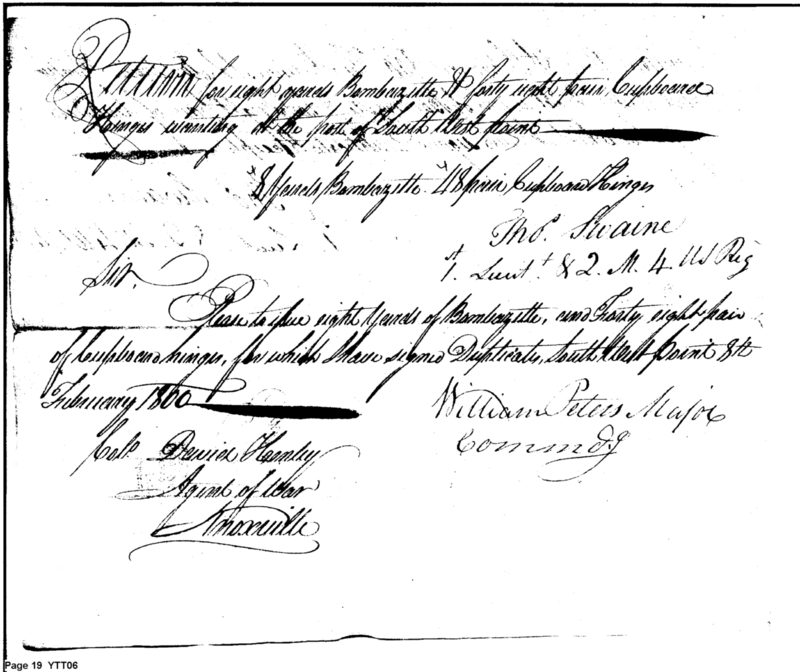 Return for eight yards Bombazette & forty eight pair Cupboard
Hinges wanting at the post of South West Point
8 Yards Bombazette 48 pair Cupboard Hinges
Thos. Swaine
1st. Lieut. & Q. M. 4 US Reg
Sir.
Please to issue eight yards of Bombazette, and Forty eight pair
of Cupboard hinges, for which I have signed Duplicate, South West Point 8th
February 1800
William Peters Major
Commdg
Colo. David Henley
Agent of War
Knoxville
Page 19 YTT06